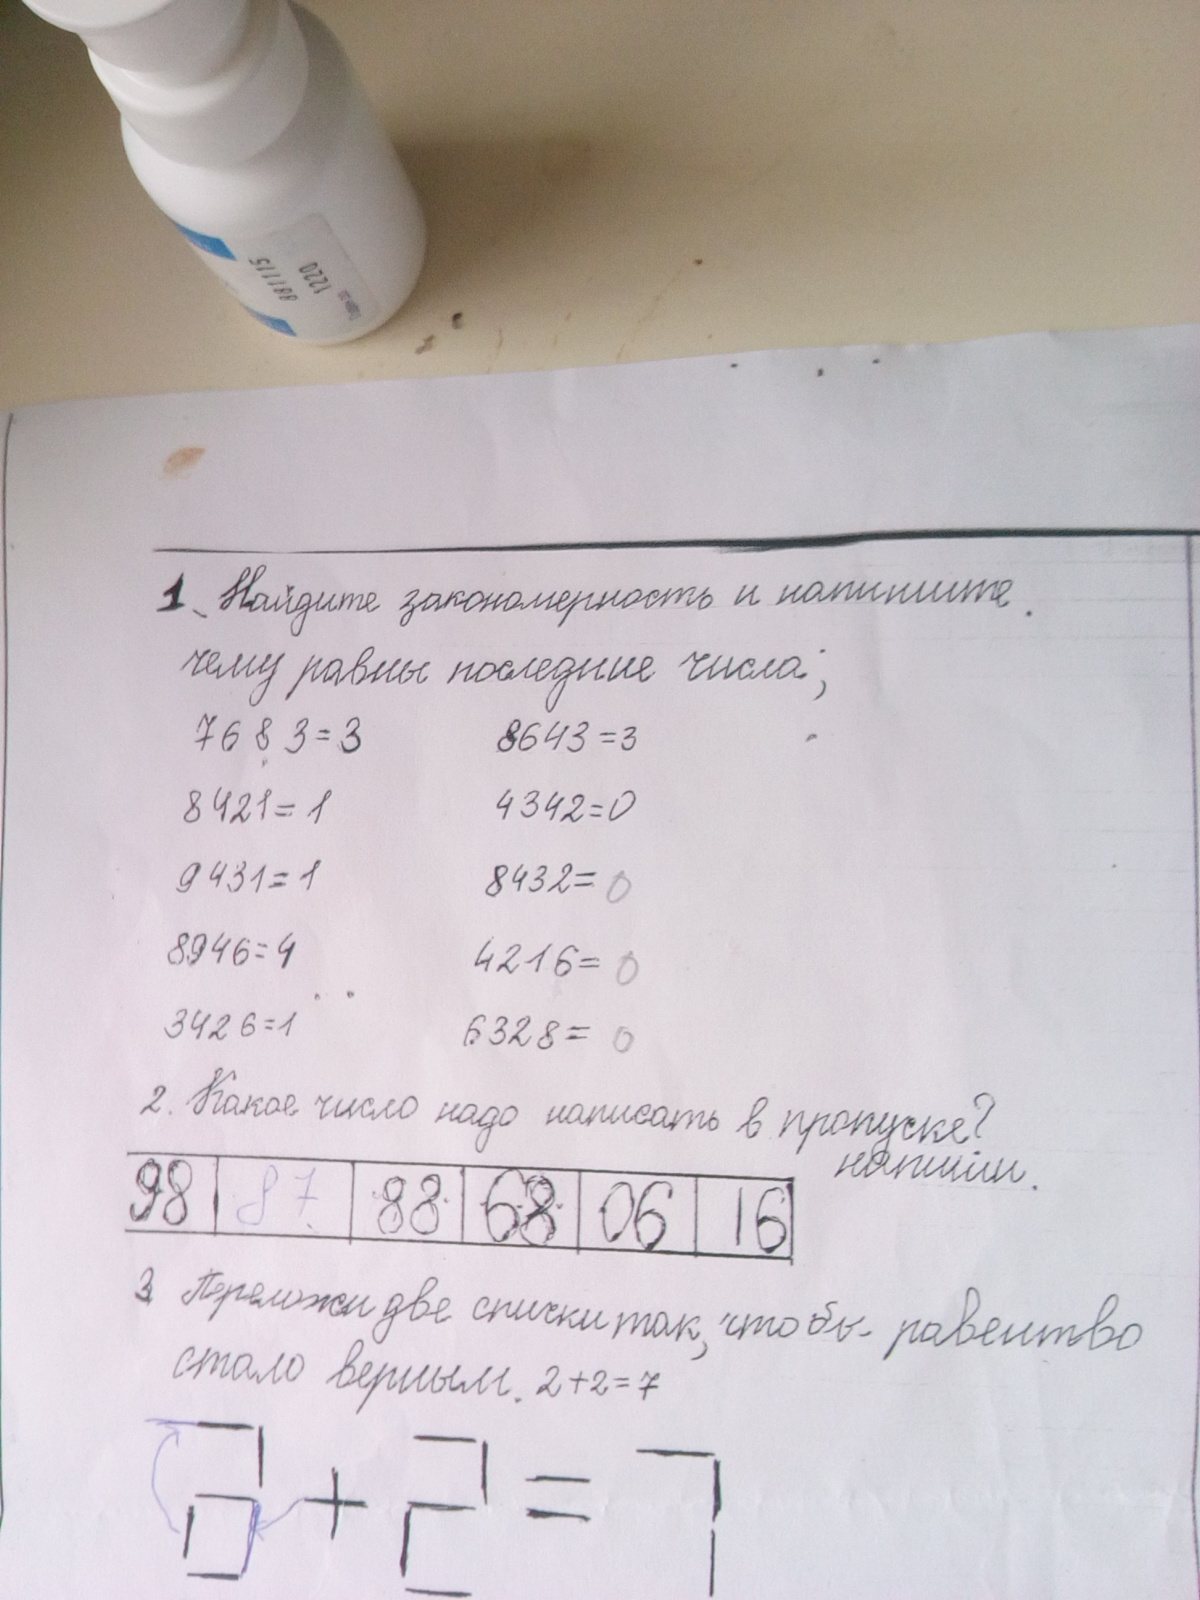 8811115
1220
1. Найдите закономерность и напишите.
чему равны последние числа;
7683=3 8643=3
8421=1 4342=0
9431=1 8432=0
8946=4 4216=0
3426=1 6328=0
2. Какое число надо написать в пропуске?
напиши.
98 87 88 68 06 16
3 Переложи две спички так, чтобы равенство
стало верным. 2+2=7
2+2=7